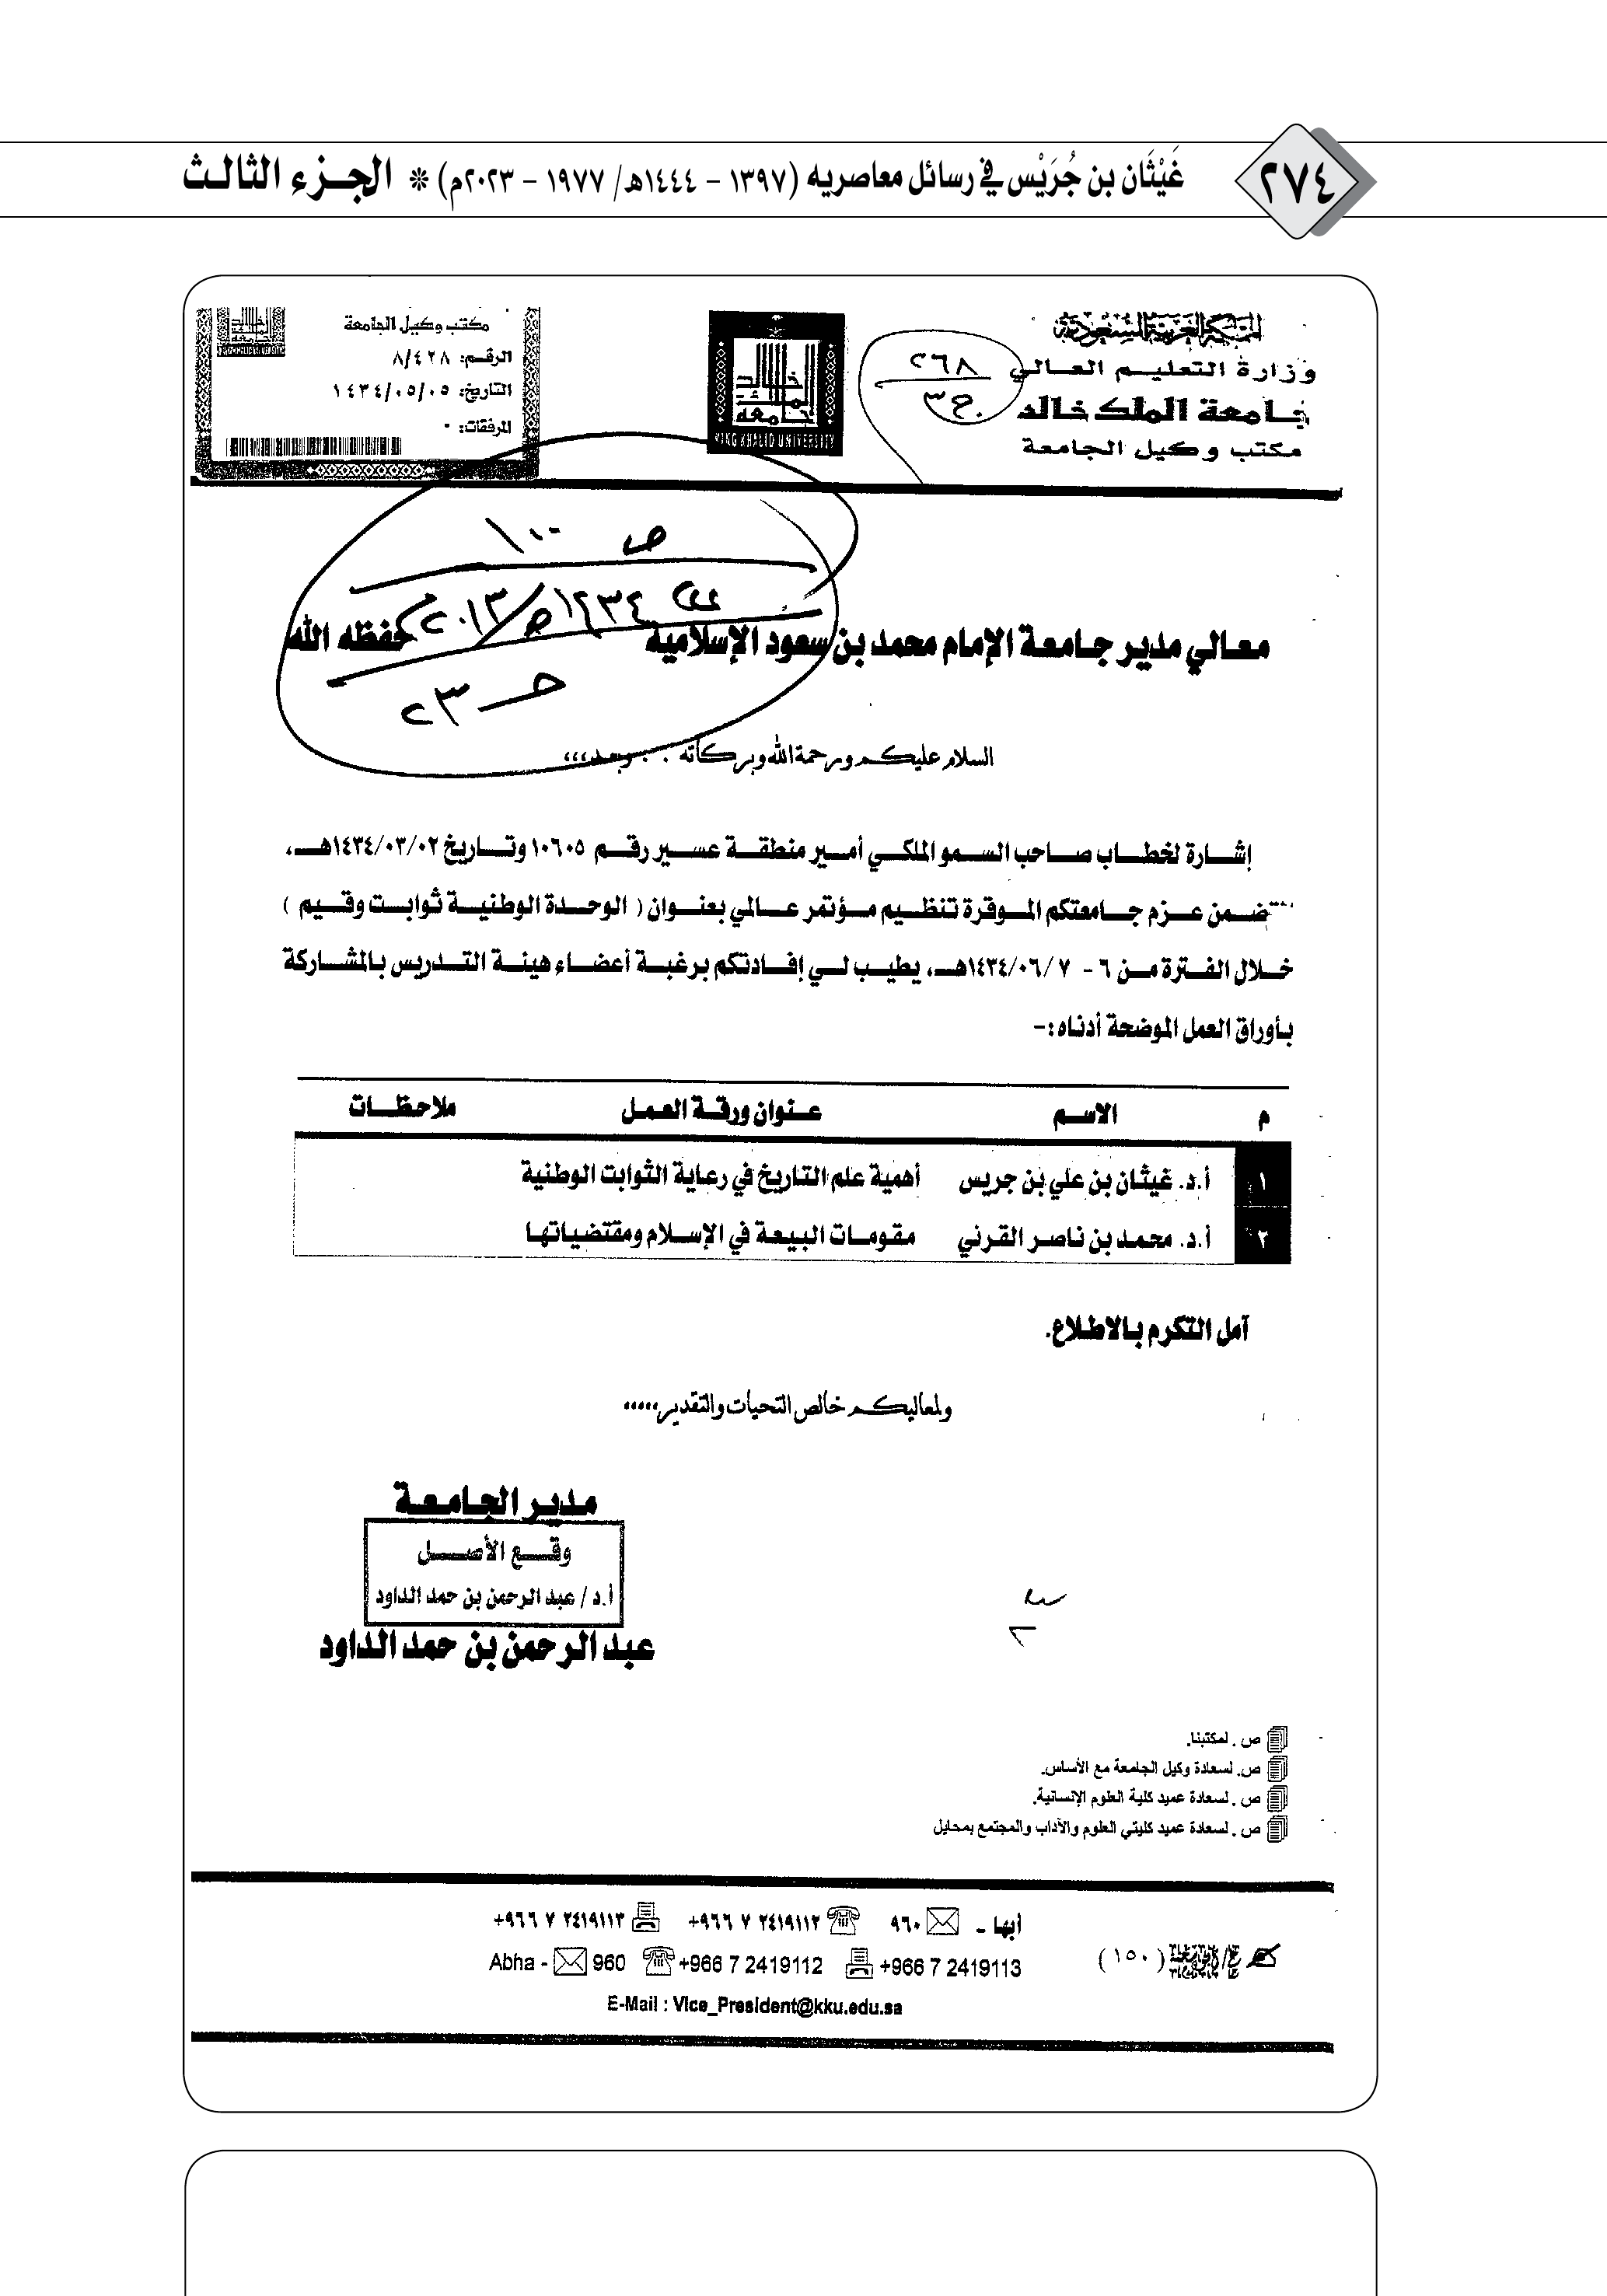 ٢٧٤
غَيْثَان بن جُرَيْس في رسائل معاصريه (١٣٩٧ - ١٤٤٤هـ/ ١٩٧٧ - ٢٠٢٣م) * الجزء الثالث
المملكة العربية السعودية
وزارة التعليم العالي
جامعة الملك خالد
مكتب وكيل الجامعة
٢٦٨
ج٣
جامعة الملك خالد
KING KHALID UNIVERSITY
مكتب وكيل الجامعة
الرقم: ٨/٤٢٨
التاريخ: ١٤٣٤/٠٥/٠٥
المرفقات: ٠
ص ١٠٠
١٤٣٤هـ/٢٠١٣م
ج ٢٣
معالي مدير جامعة الإمام محمد بن سعود الإسلامية حفظه الله
السلام عليكم ورحمة الله وبركاته . . وبعد،،،
إشارة لخطاب صاحب السمو الملكي أمير منطقة عسير رقم ١٠٦٠٥ وتاريخ ١٤٣٤/٠٣/٠٢هـ،
المتضمن عزم جامعتكم الموقرة تنظيم مؤتمر عالمي بعنوان ( الوحدة الوطنية ثوابت وقيم )
خلال الفترة من ٦ - ١٤٣٤/٠٦/٧هـ، يطيب لي إفادتكم برغبة أعضاء هيئة التدريس بالمشاركة
بأوراق العمل الموضحة أدناه:-
م الاسم عنوان ورقة العمل ملاحظات
١ أ.د. غيثان بن علي بن جريس أهمية علم التاريخ في رعاية الثوابت الوطنية
٢ أ.د. محمد بن ناصر القرني مقومات البيعة في الإسلام ومقتضياتها
آمل التكرم بالاطلاع.
ولمعاليكم خالص التحيات والتقدير،،،،،
مدير الجامعة
وقع الأصل
أ.د / عبد الرحمن بن حمد الداود
عبد الرحمن بن حمد الداود
ص . لمكتبنا.
ص. لسعادة وكيل الجامعة مع الأساس.
ص . لسعادة عميد كلية العلوم الإنسانية.
ص . لسعادة عميد كليتي العلوم والآداب والمجتمع بمحايل
أبها - ٩٦٠ +٩٦٦ ٧ ٢٤١٩١١٢ +٩٦٦ ٧ ٢٤١٩١١٣
Abha - 960 +966 7 2419112 +966 7 2419113
(١٥٠)
E-Mail : Vice_President@kku.edu.sa